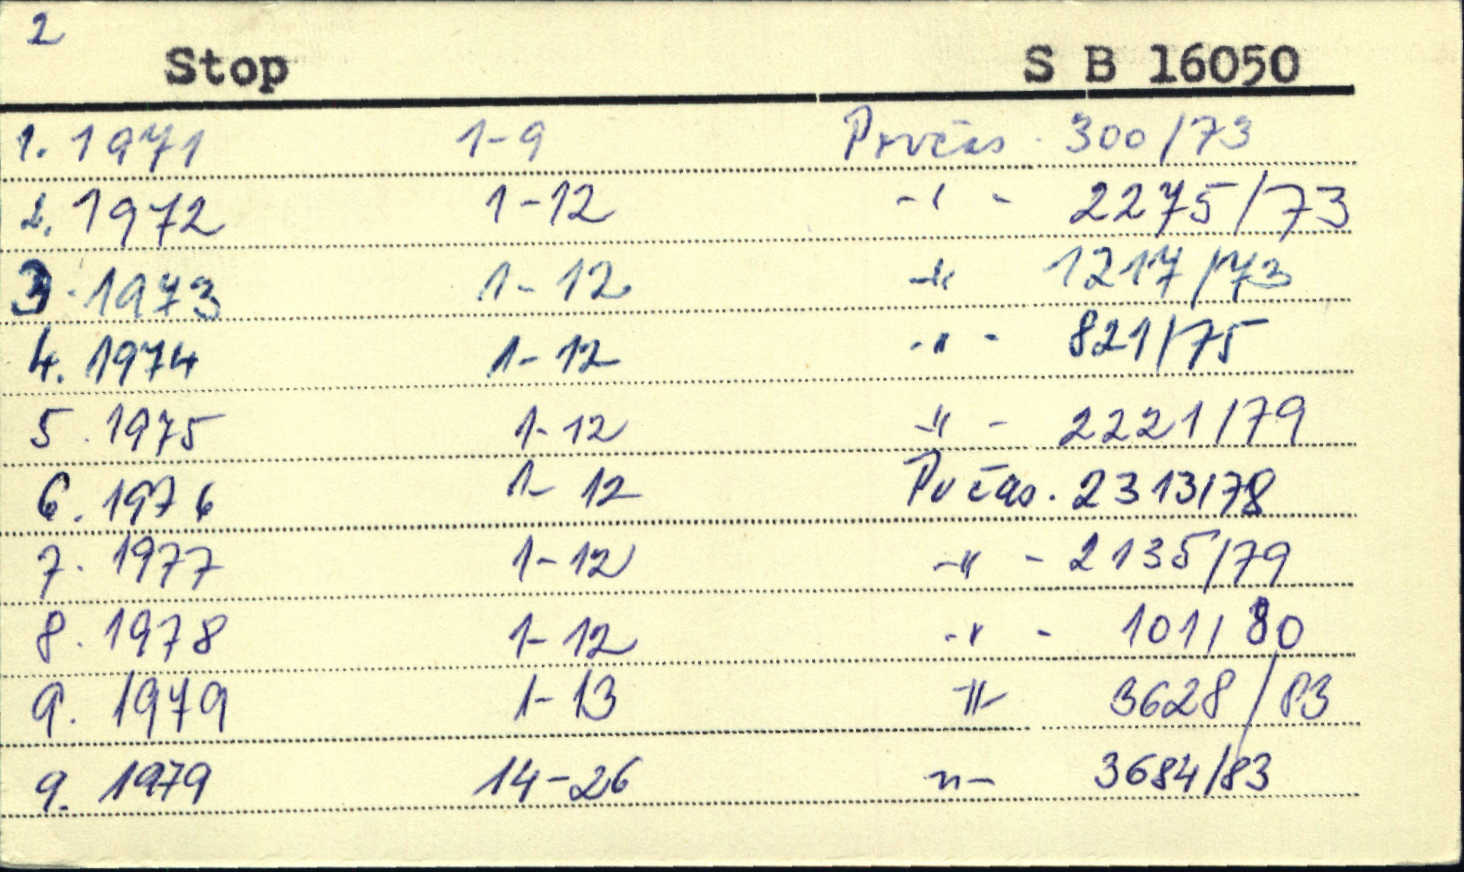 2
Stop S B 16050
1. 1971 1-9 Prvčás. 300/73
2. 1972 1-12 -"- 2275/73
3. 1973 1-12 -"- 1217/73
4. 1974 1-12 -"- 821/75
5. 1975 1-12 -"- 2221/79
6. 1976 1-12 Pvčas. 2313/78
7. 1977 1-12 -"- 2135/79
8. 1978 1-12 -"- 101/80
9. 1979 1-13 -"- 3628/83
9. 1979 14-26 -"- 3684/83